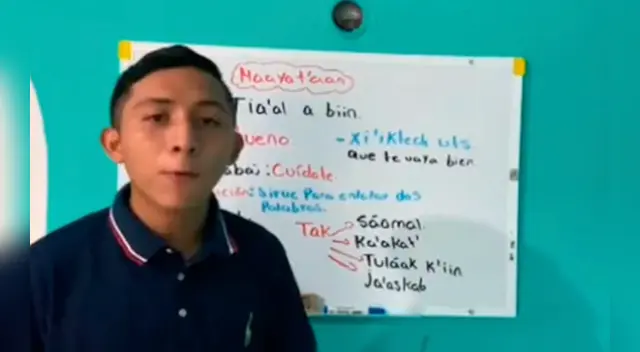 Maayat'aan
Tia'al a biin.
ueno.
- Xi'iktech uts
que te vaya bien
aba: Cuídate
ción: Sirve Para enlazar dos
Palabras.
Tak
Sáamal.
Ka'aka't
Tuláak k'iin
Ja'askab